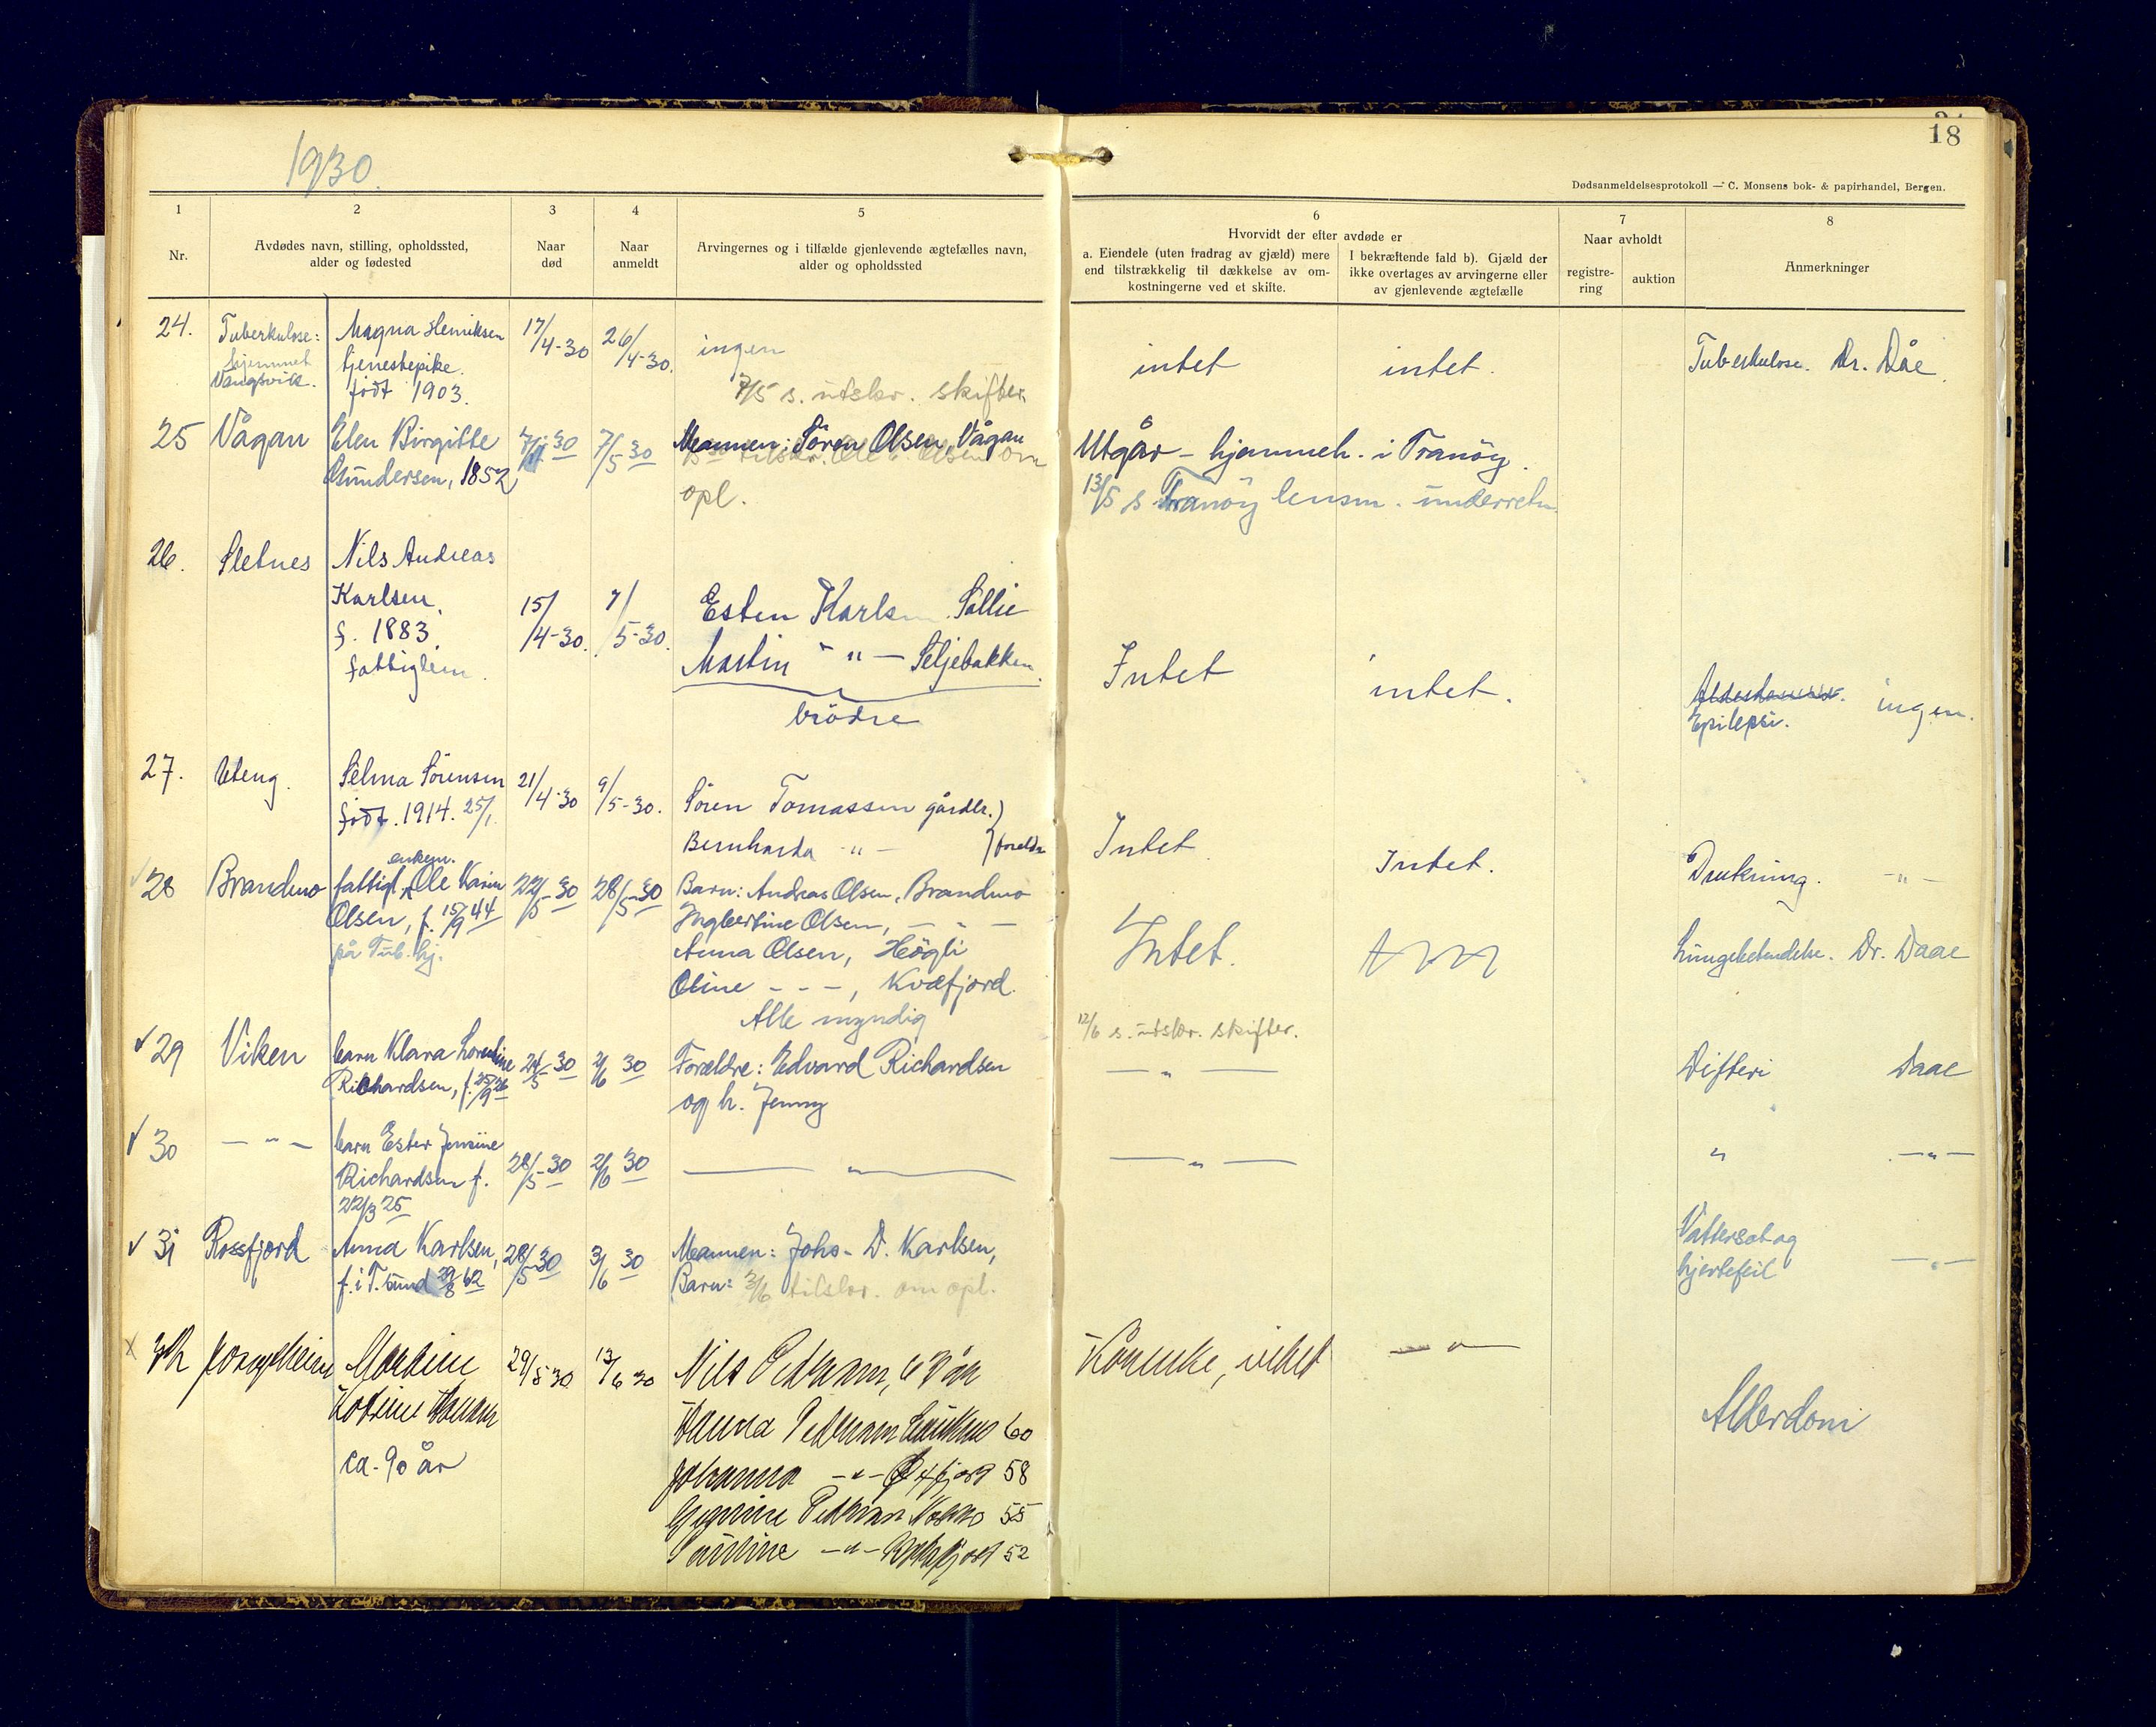 1930.
18
Dødsanmeldelsesprotokoll — C. Monsens bok- & papirhandel, Bergen.
1
Nr.
2
Avdødes navn, stilling, opholdssted,
alder og fødested
3
Naar
død
4
Naar
anmeldt
5
Arvingernes og i tilfælde gjenlevende ægtefælles navn,
alder og opholdssted
6
Hvorvidt der efter avdøde er
a. Eiendele (uten fradrag av gjæld) mere
end tilstrækkelig til dækkelse av om-
kostningerne ved et skifte.
I bekræftende fald b). Gjæld der
ikke overtages av arvingerne eller
av gjenlevende ægtefælle
7
Naar avholdt
registre-
ring
auktion
8
Anmerkninger
24.
Tuberkulose:
hjemmet
Vangsvik.
Magna Henriksen
tjenestepike.
født 1903.
17/4-30
26/4-30.
ingen
7/5 s. utskr. skifter.
intet
intet.
Tuberkulose. Dr. Dåe.
25
Vågan
Elen Birgitte
Gundersen, 1852
30
7/5 30
Mannen: Sören Olsen, Vågan
opl.
Utgår - hjemmeh. i Tranöy.
13/5 s Tranöy lensm. underretn.
26.
Sletnes
Nils Andreas
Karlsen.
f. 1883.
fattiglem.
15/4-30.
7/5-30.
Esten Karlsen. Sollie
Martin - " - Seljebakken.
brödre
Intet
intet.
Epilepsi.
ingen.
27.
Uteng.
Selma Sörensen
født. 1914. 25/1.
21/4-30
9/5-30.
Sören Tomassen gårdbr.)
Bernharda - " - } foreldre
Intet.
Intet.
Drukning. - " -
28
Brandmo
enken.
fattigl. Ole Karin
Olsen, f. 15/9 44
på Tub. hj.
22/5-30
28/5-30
Barn: Andreas Olsen, Brandmo
Ingbertine Olsen, - " -
Anna Olsen, Högli
Oline - - -, Kvæfjord.
Alle myndig
Intet.
12/6 s. utskr. skifter.
Lungebetendelse. Dr. Daae
29
Viken
barn Klara Lorentine
Richardsen, f. 25/9 26
24/5-30
2/6 30
Forældre: Edvard Richardsen
og h. Jenny
- " -
Difteri Daae
30
- " -
barn Ester Jensine
Richardsen f.
22/3 25
28/5-30
2/6 30
- " -
- " -
" - " -
31
Rossfjord
Anna Karlsen,
f. i T. sund 29/8 62
28/5-30
3/6 30
Mannen: Johs. D. Karlsen,
Barn: 3/6 tilskr. om opl.
Vattersot og
hjertefeil - " -
ca. 90 år
29/5 30
13/6 30
Nils
Hanna 60
Johanna - " - 58
55
- " - 52
intet
- " -
Alderdom